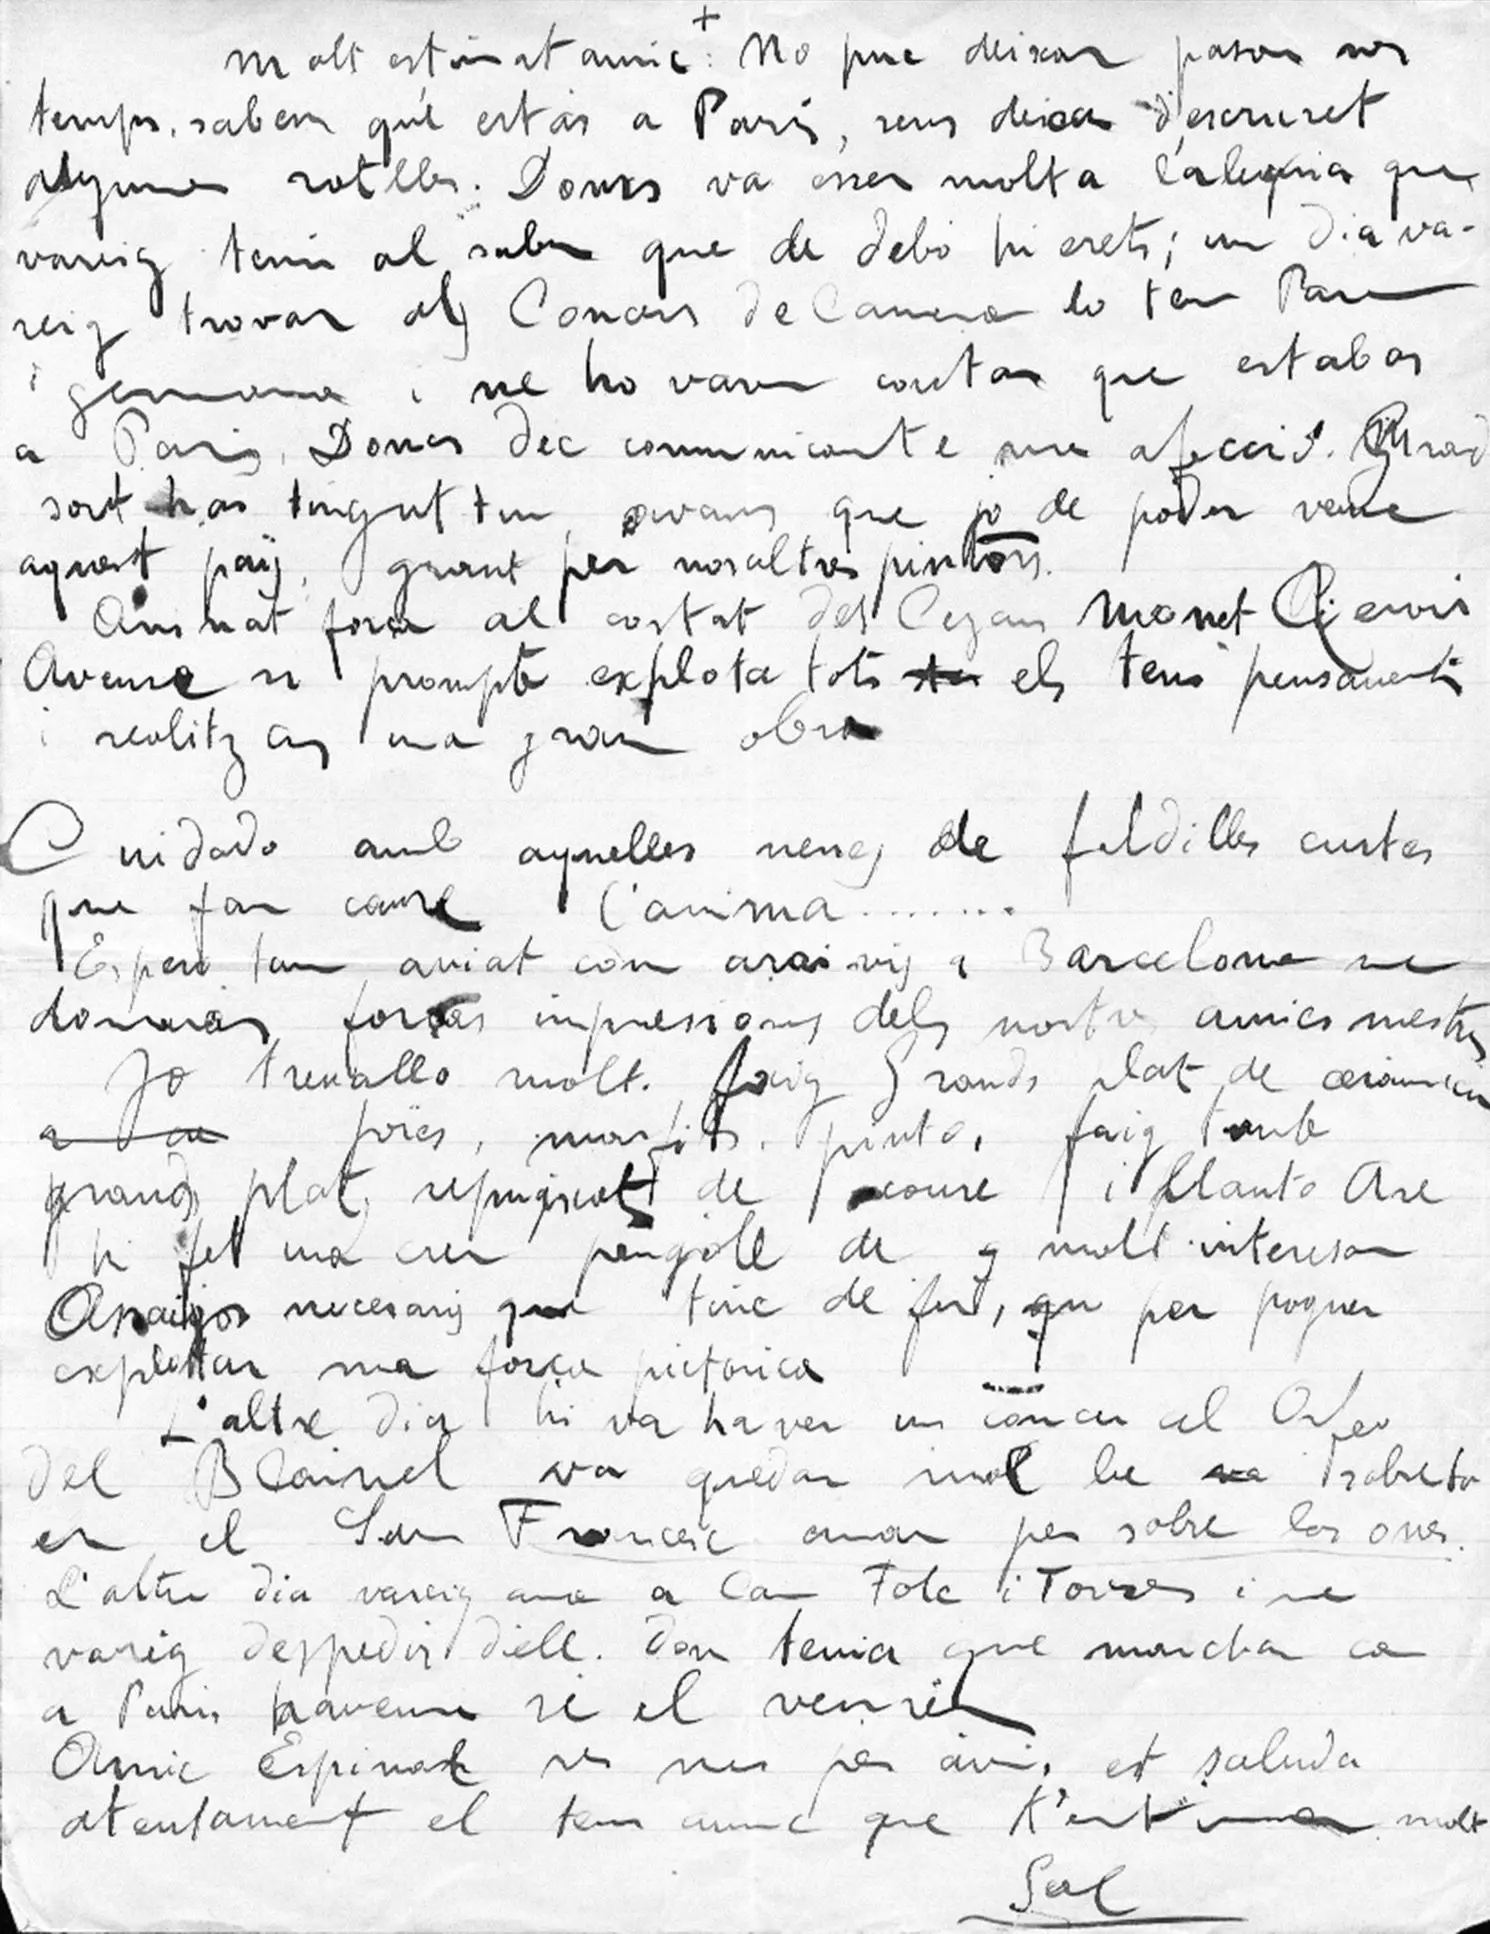 +
Molt estimat amic: No puc deixar pasar mes
temps, saben qué estas a Paris, sens deixar d'escriuret
algunes ratlles. Doncs va esser molta l'alegria que
vareig tenir al saber que de debó hi erets; un dia va-
reig trovar als Concers de Camera lo teu Pare
i germana i me ho varen contar que estabas
a Paris. Doncs dec comunicarte ma afecció.
sort has tingut tu avans que jo de poder veure
aquest pais, grant per nosaltres pintors.
Animat força al costat dels Cezan Monet
Avense si prompte explota tots els teus pensaments
i realitzas una gran obra
Cuidado amb aquelles nenes de faldilles curtes
que fan caure l'anima.......
Espero tan aviat com arrivis a Barcelona me
donarás forças impressions dels nostres amics mestres
Jo trevallo molt. faig grands plat de ceramica
foies, pinto, faig tambe
grands plats repujat de coure i planta Are
hi fet una creu de molt interesan
Assaigos necesaris que tinc de fer, per poguer
explotar ma força pictorica
L'altre dia hi va haver un concer al Orfeo
del Blainel va quedar mol be sobreto
en el San Francesc anan per sobre las ones.
L'altre dia vareig ana a Can Folc i Torres i me
vareig despedir d'ell. Don tenia que marchar ca
a Paris
Amic Espinal res mes per avui, et saluda
atentament el teu amic que t'estima molt
Sal